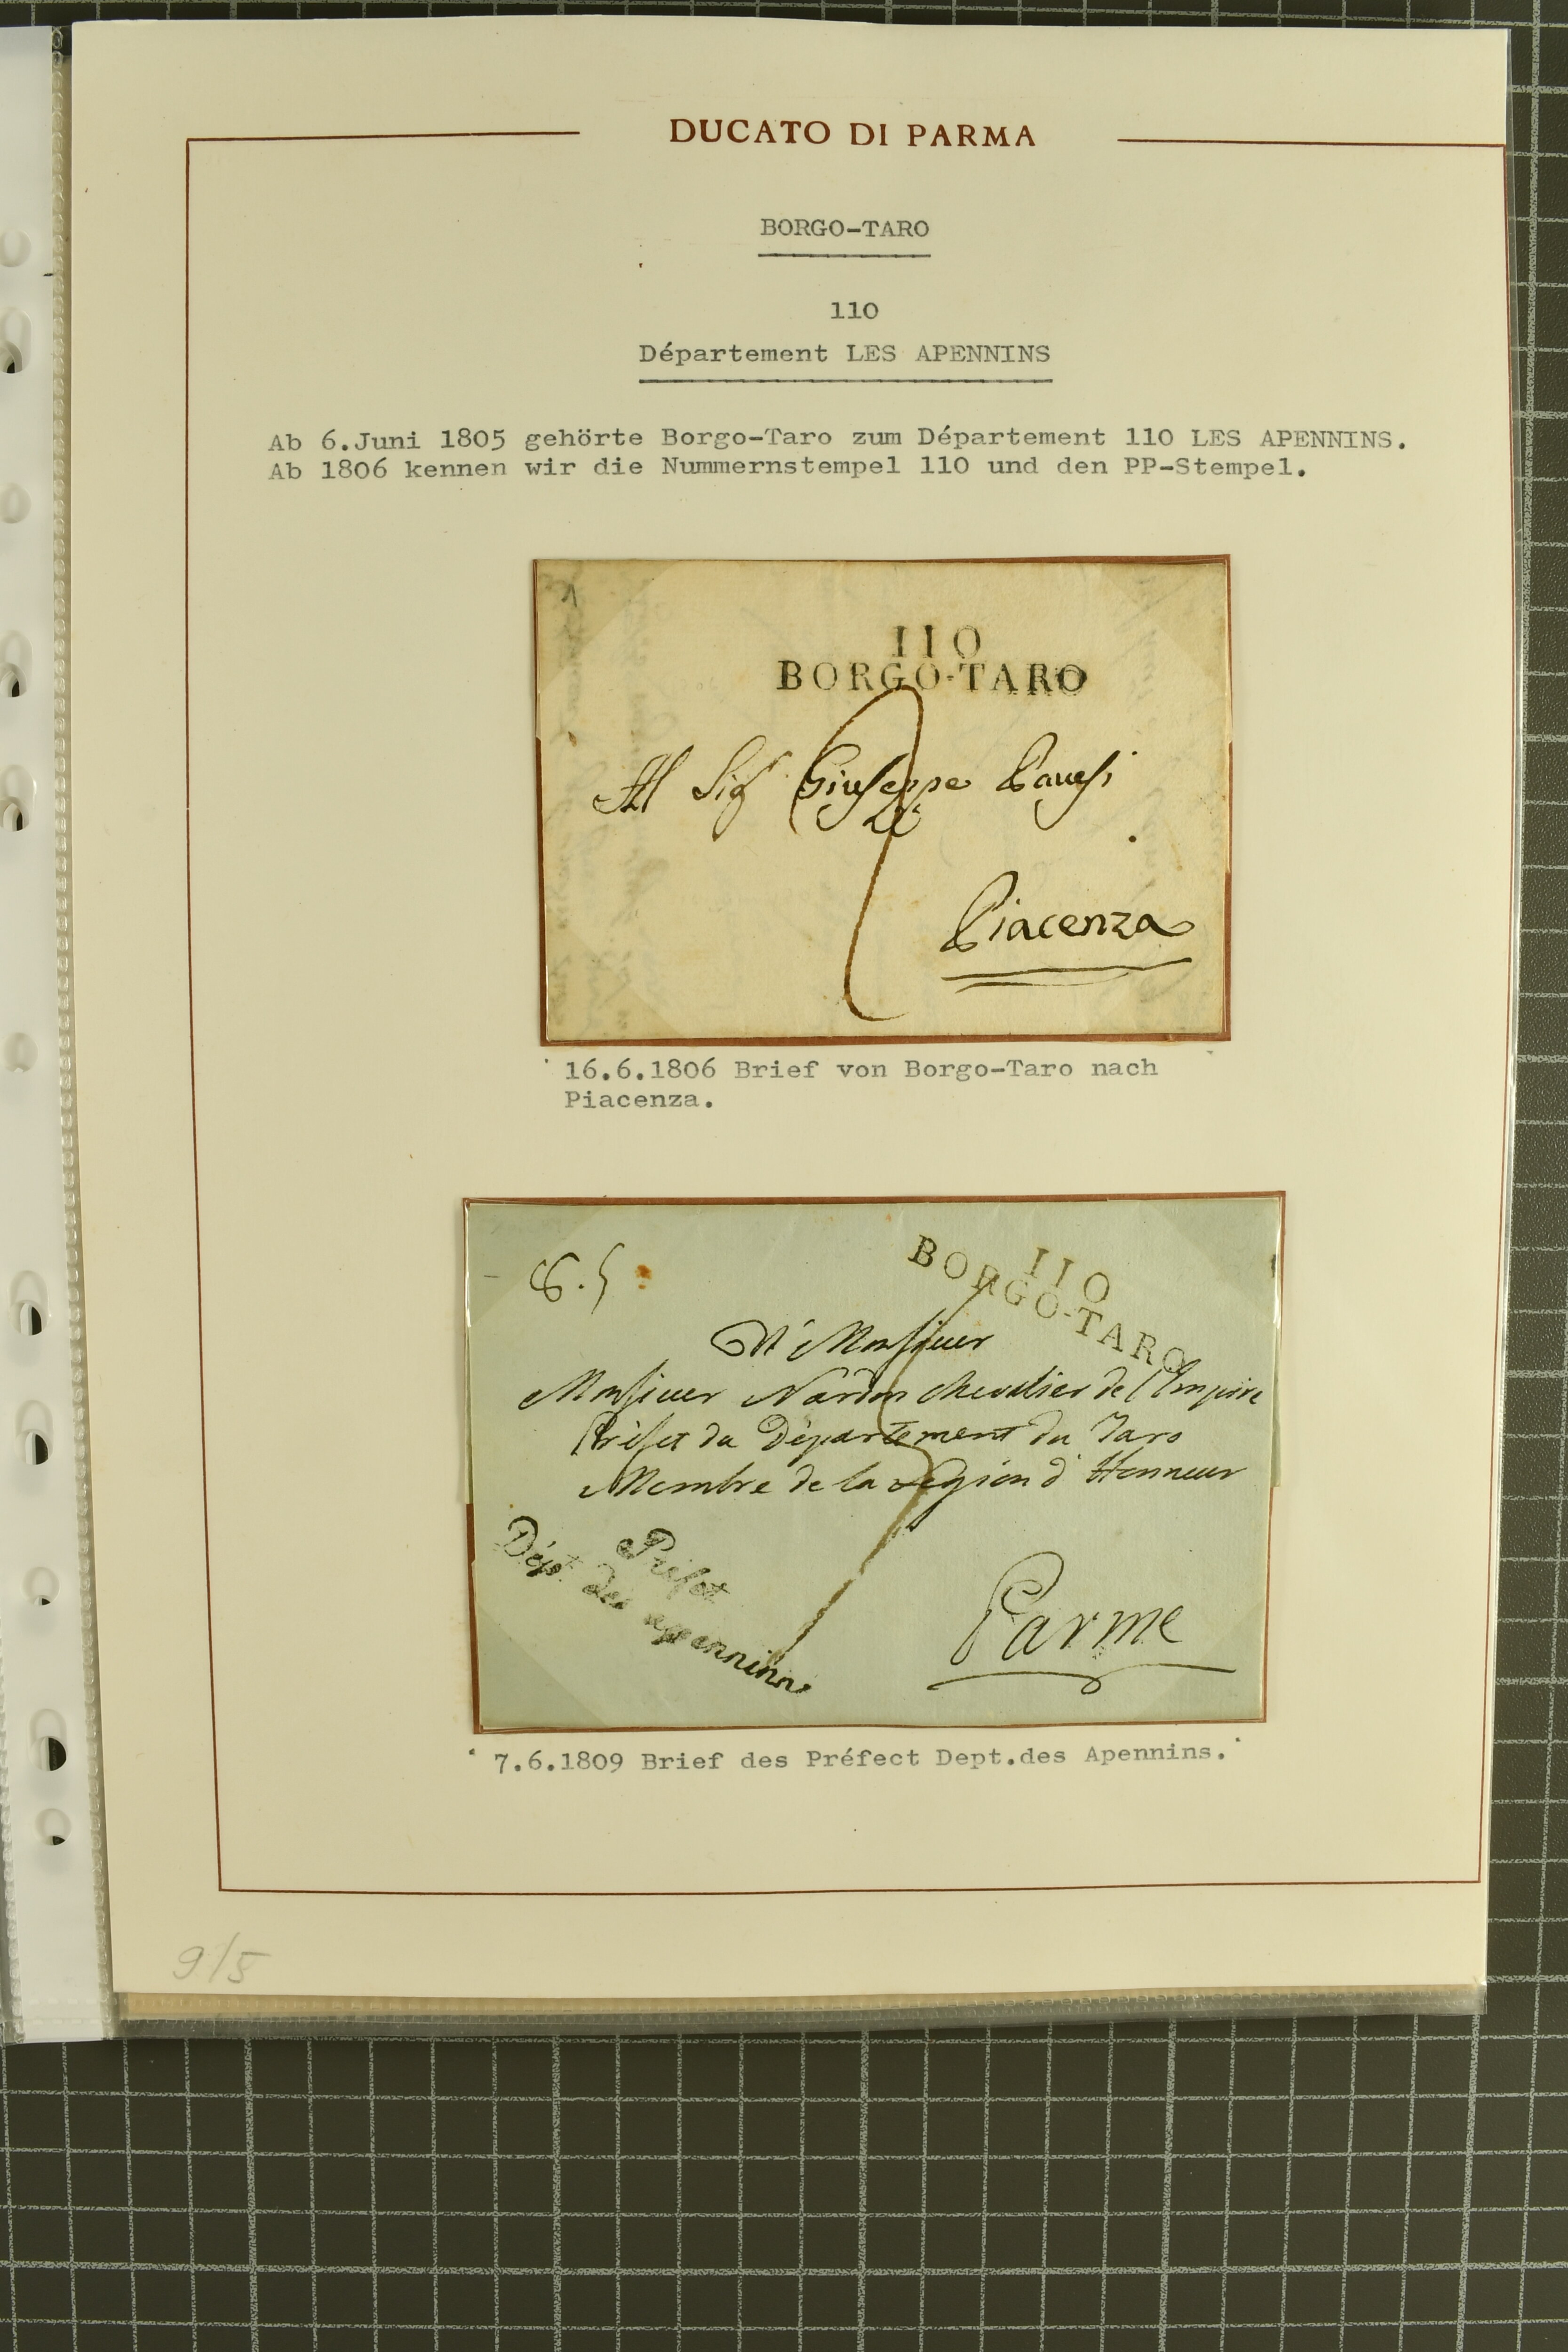 DUCATO DI PARMA
BORGO-TARO
110
Département LES APENNINS
Ab 6.Juni 1805 gehörte Borgo-Taro zum Département 110 LES APENNINS.
Ab 1806 kennen wir die Nummernstempel 110 und den PP-Stempel.
110
BORGO-TARO
Al Sig Giuseppe Pavesi
Piacenza
16.6.1806 Brief von Borgo-Taro nach
Piacenza.
110
BORGO-TARO
A Monsieur
Monsieur Nardon Chevalier de l'Empire
Préfet du Département du Taro
Membre de la Légion d'Honneur
Préfet
Dépt. des apennins
Parme
7.6.1809 Brief des Préfect Dept.des Apennins.
9/5